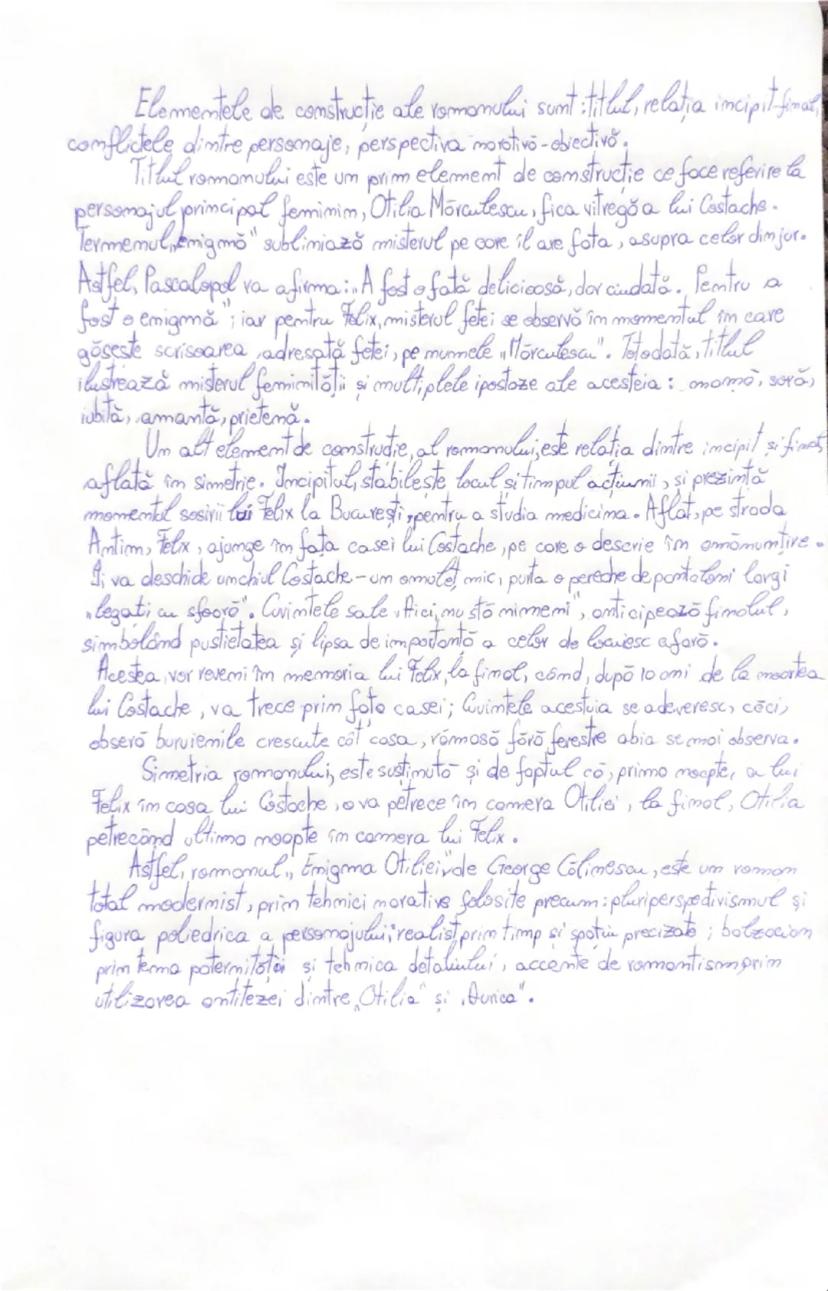 Elementele de construcție ale romanului sunt: titlul, relația incipit-final,
conflictele dintre personaje, perspectiva narativă-obiectivă.
Titlul romanului este un prim element de construcție ce face referire la
personajul principal feminin, Otilia Mărculescu, fica vitregăa a lui Costache.
Termenul „enigmă" sublimiază misterul pe care îl are fata, asupra celor dinjur.
Astfel, Pascalopol va afirma: „A fost o fată delicioasă, dar ciudată. Pentru a
fost o enigmă"; iar pentru Felix, misterul fetei se observă în momentul în care
găsește scrisoarea, adresată fetei, pe numele „Mărculescu". Totodată, titlul
ilustrează misterul feminității și multiplele ipostaze ale acesteia: mamă, soră,
iubită, amantă, prietenă.
Un alt element de construcție, al romanului, este relația dintre incipit și final,
aflată în simetrie. Incipitul, stabilește locul și timpul acțiunii, și prezintă
momentul sosirii lui Felix la București, pentru a studia medicina. Aflat, pe strada
Antim, Felix, ajunge în fața casei lui Costache, pe care o descrie în amănunțire.
Îi va deschide unchiul Costache - un omuleț mic, purta o pereche de pantaloni largi
„legați cu sfoară". Cuvintele sale „Aici, nu stă nimeni", anticipează finalul,
simbolând pustietatea și lipsa de importanță a celor de locuiesc afară.
Acestea, vor reveni în memoria lui Felix, la final, când, după 10 ani de la moartea
lui Costache, va trece prin fața casei; Cuvintele acestuia se adeveresc, căci,
obseră buruienile crescute cât casa, rămasă fără ferestre abia se mai observa.
Simetria romanului, este susținută și de faptul că, prima noapte, a lui
Felix în casa lui Costache, o va petrece în camera Otiliei, la final, Otilia
petrecând ultima noapte în camera lui Felix.
Astfel, romanul „Enigma Otiliei", de George Călinescu, este un roman
total modernist, prin tehnici narative folosite precum: pluriperspectivismul și
figura poliedrica a personajului; realist, prin timp și spațiu precizate; balzacian
prin tema paternității și tehnica detaliului, accente de romantism prin
utilizarea antitezei dintre „Otilia" și „Aurica".